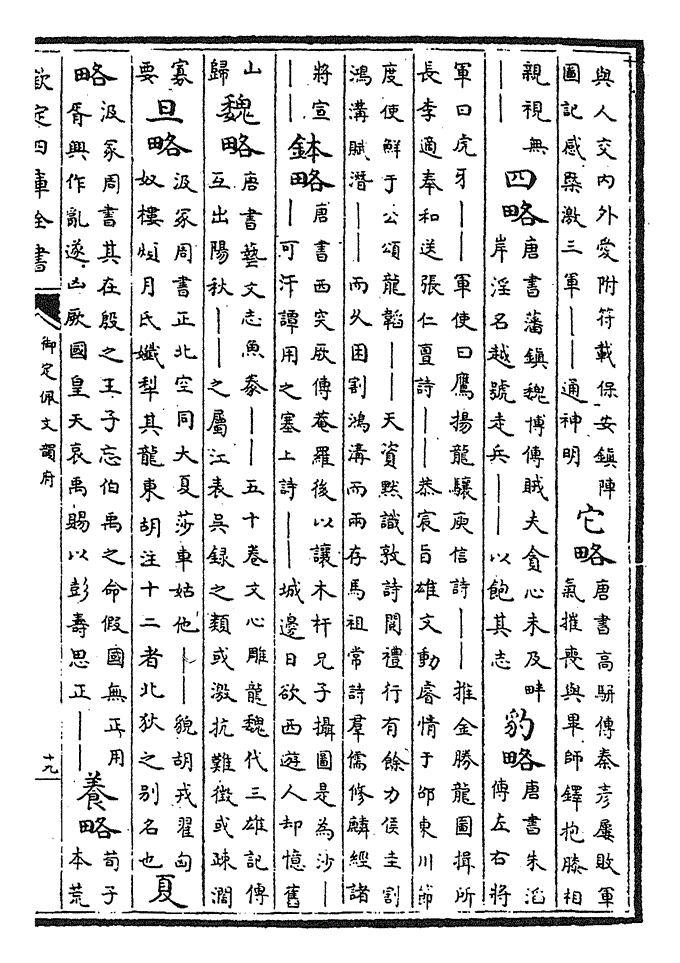 與人交内外愛附符載保安鎮陣
圖記感槩激三軍——通神明
它略
唐書高駢傳秦彦屢敗軍
氣摧喪與畢師鐸抱膝相
親視無
——
四略
唐書藩鎮魏博傳賊夫貪心未及畔
岸淫名越號走兵——以飽其志
豹略
唐書朱滔
傳左右將
軍曰虎牙——軍使曰鷹揚龍驤庾信詩——推金勝龍圖揖所
長李適奉和送張仁亶詩——恭宸旨雄文動睿情于邵東川節
度使鮮于公頌龍韜——天資黙識敦詩閱禮行有餘力侯圭割
鴻溝賦潛——而乆困割鴻溝而兩存馬祖常詩羣儒修麟經諸
將宣
——
鉢略
唐書西突厥傳菴羅後以讓木杆兄子攝圖是為沙—
—可汗譚用之塞上詩——城邊日欲西遊人却憶舊
山
歸
魏略
唐書藝文志魚豢——五十卷文心雕龍魏代三雄記傳
互出陽秋——之屬江表吳録之類或激抗難徵或疎濶
寡
要
旦略
汲冢周書正北空同大夏莎車姑他——貌胡戎翟匈
奴樓煩月氏孅犁其龍東胡注十二者北狄之别名也
夏
略
汲冢周書其在殷之王子忘伯禹之命假國無正用
胥興作亂遂凶厥國皇天哀禹賜以彭壽思正——
養略
荀子
本荒
欽定四庫全書
御定佩文韻府
十九